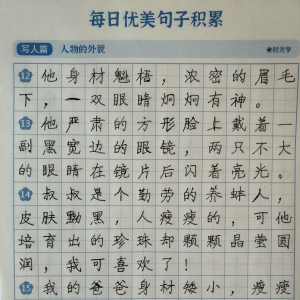 每日优美句子积累
写人篇 人物的外貌 ★时光学
12 他身材魁梧，浓密的眉毛
下，一双眼睛炯炯有神。
13 他严肃的方形脸上戴着一
副黑宽边的眼镜，两只不大
的眼睛在镜片后闪着亮光。
14 叔叔是个勤劳的养蚌人，
皮肤黝黑，人瘦瘦的，可他
培育出的珍珠却颗颗晶莹圆
润，我可喜欢了！
15 我的爸爸身材矮小，瘦瘦